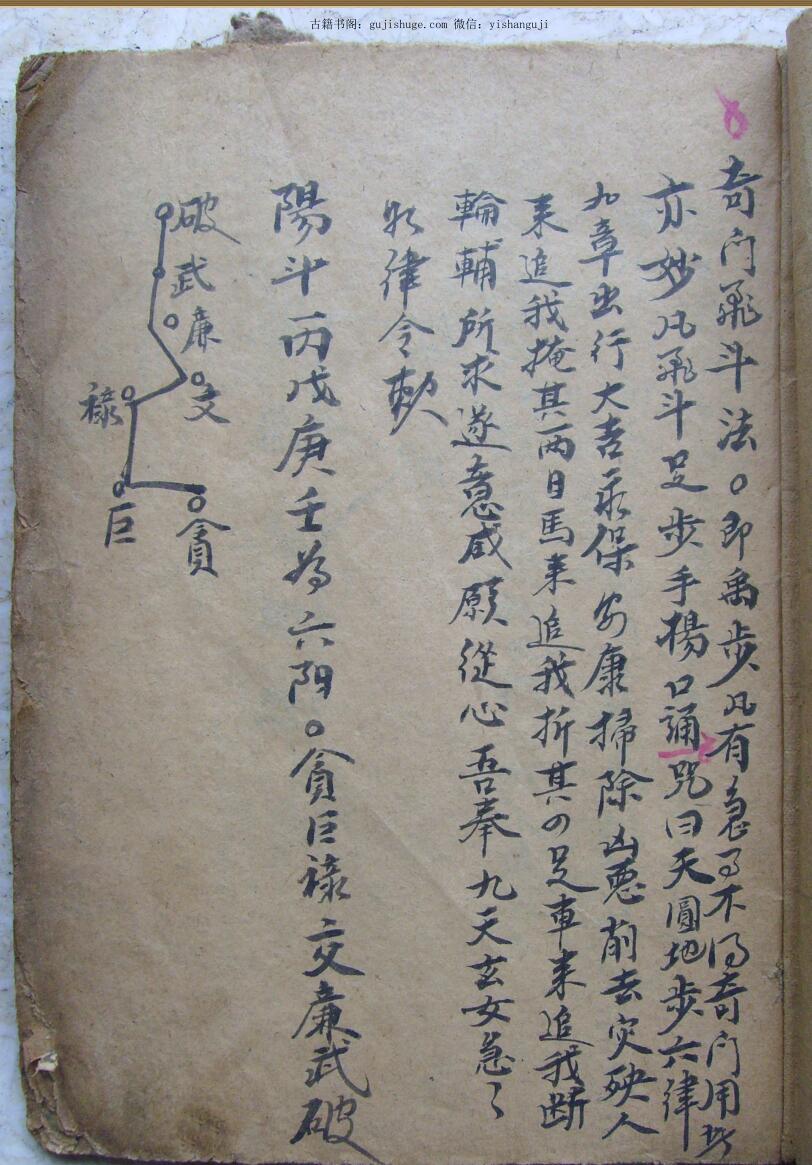 古籍书阁：gujishuge.com 微信：yishanguji
奇门飛斗法。即禹步凡有急事不得奇门用此
亦妙凡飛斗足步手揚口誦咒曰天圓地步六律
九章出行大吉永保安康掃除凶惡削去灾殃人
来追我掩其两目馬来追我折其四足車来追我断
輪輔所求遂意咸願從心吾奉九天玄女急々
如律令敕
陽斗丙戊庚壬為六阳。貪巨祿文廉武破
破
武
廉
文
祿
巨
貪